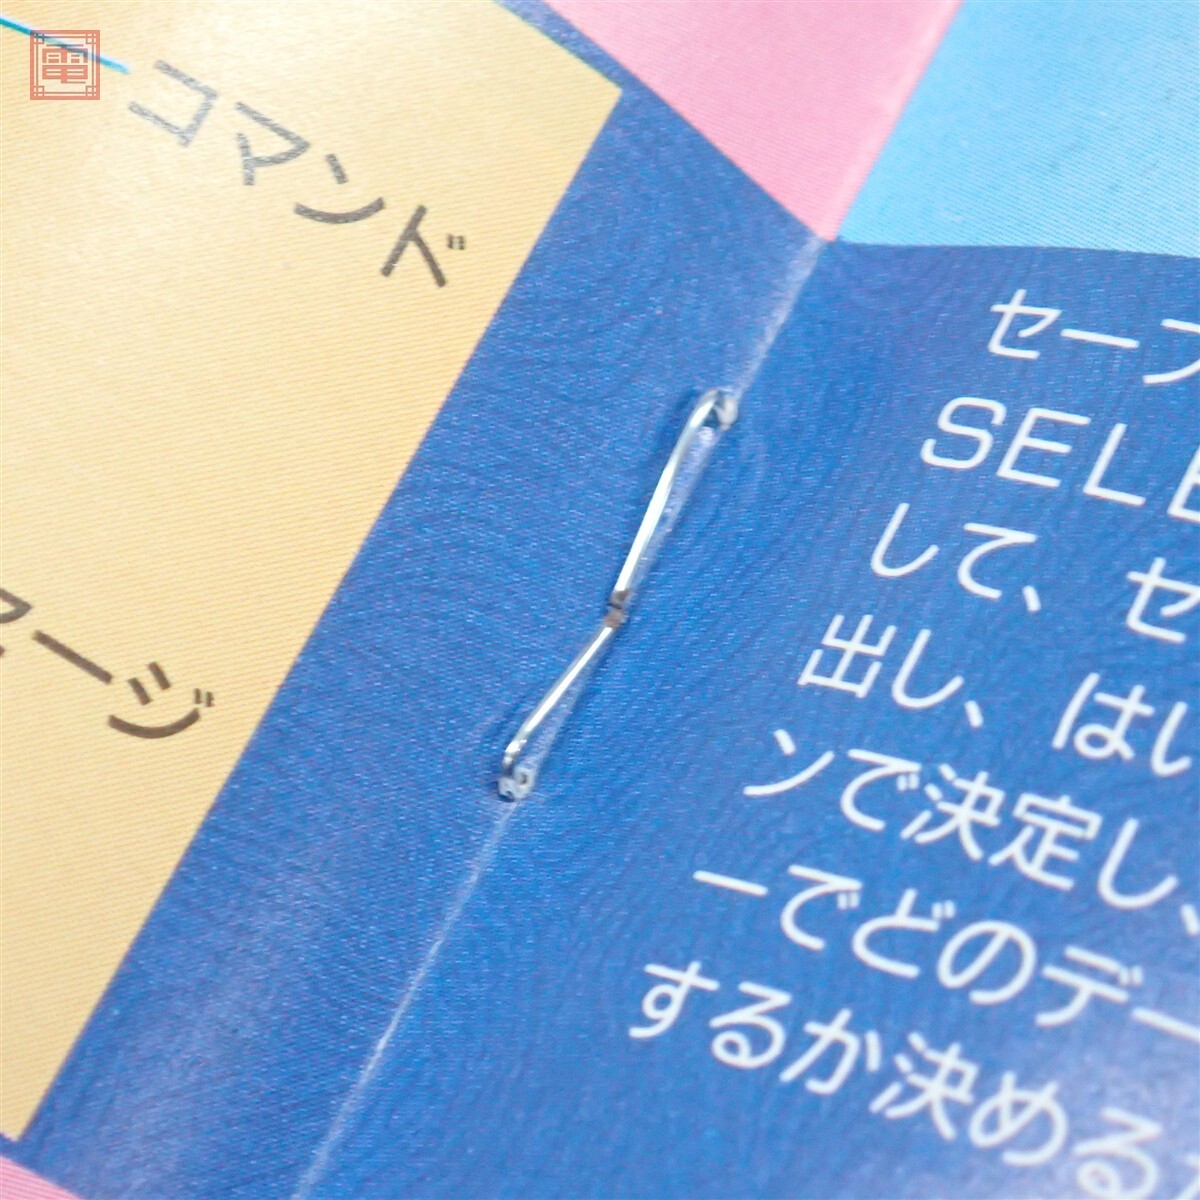 電
コマンド
ージ
セーブ
SELE
して、セ
出し、はい
ンで決定し、
ーでどのデー
するか決める